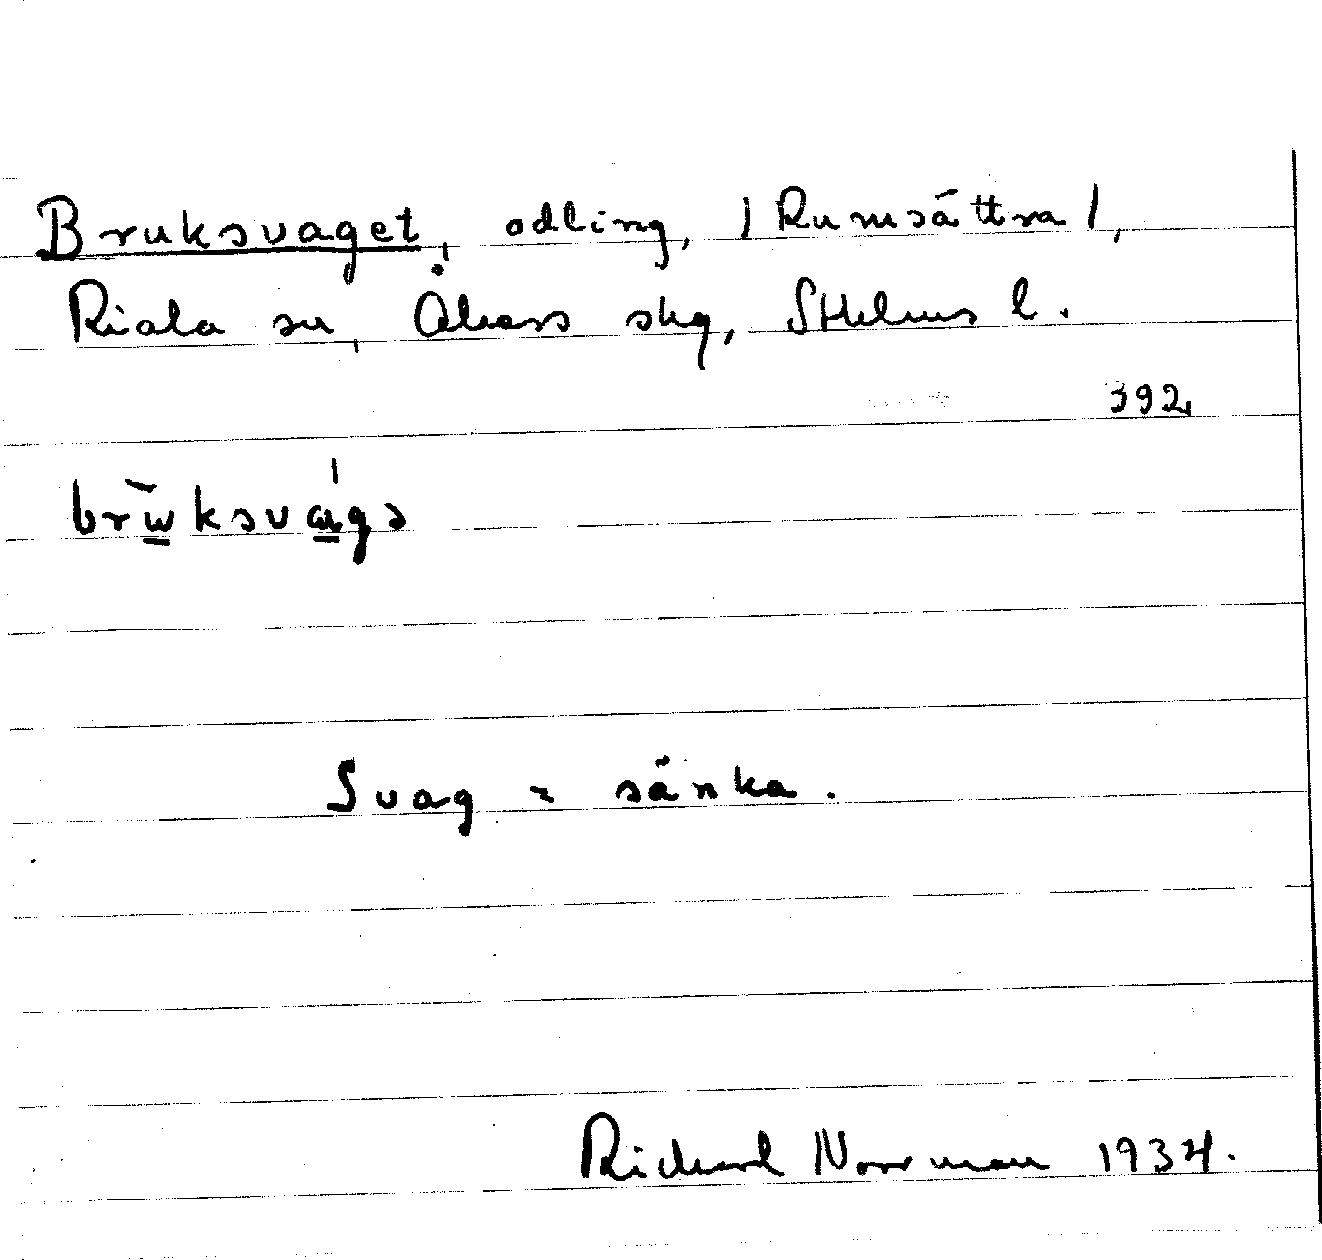 Bruksvaget, odling, /Rumsättra/,
Riala sn, Åkers skg, Sthlms l.
392,
bruksvagə
Svag = sänka.
Richard Norrman 1934.